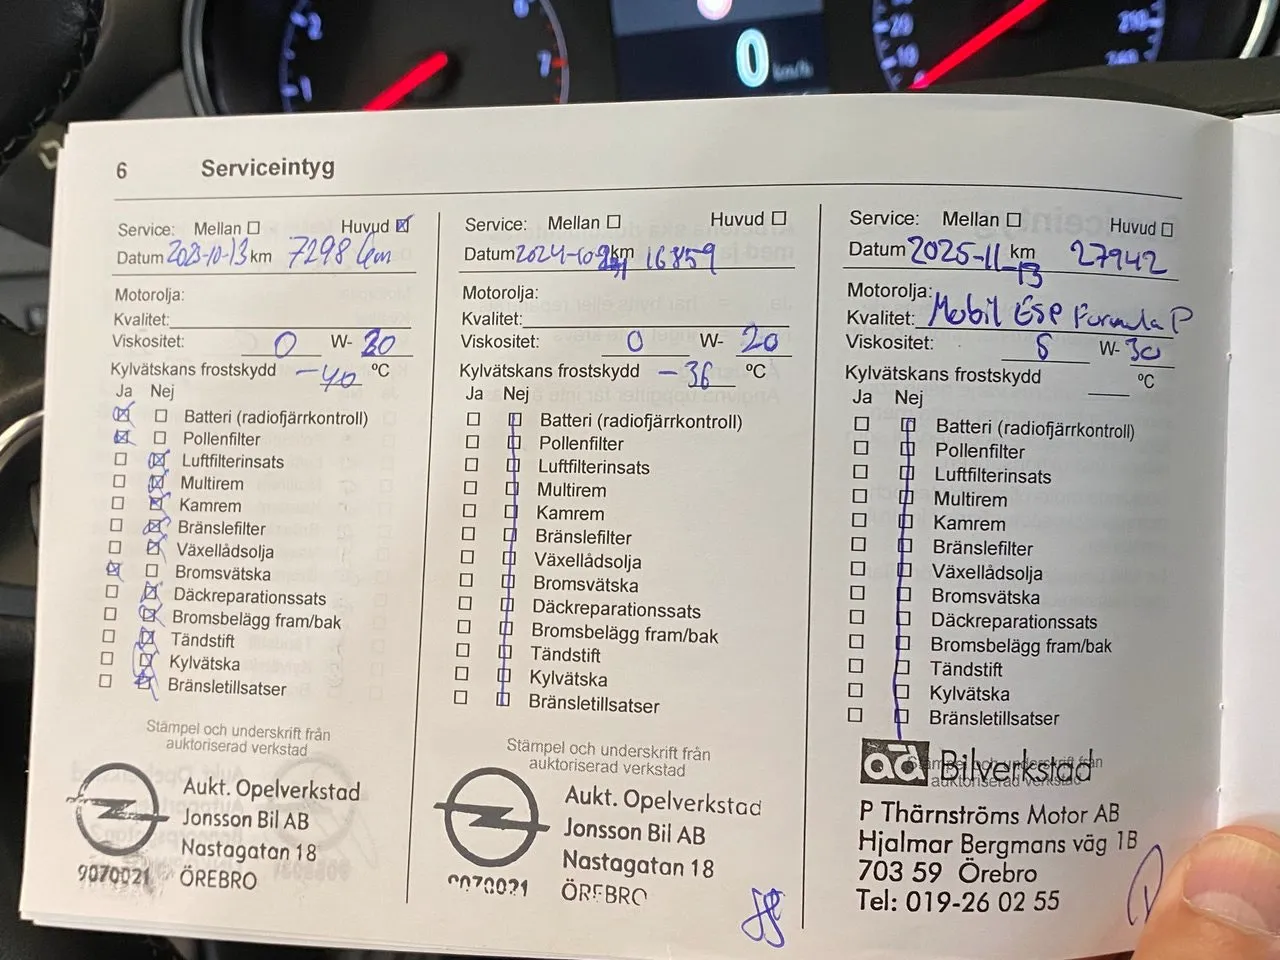 2
1
6
7
0
km/h
20
10
0
210
240
6 Serviceintyg
Service: Mellan ☐ Huvud ☒
Datum 2023-10-13 km 7298 km
Motorolja:
Kvalitet:
Viskositet: 0 W- 20
Kylvätskans frostskydd -40 °C
Ja Nej
☒ ☐ Batteri (radiofjärrkontroll)
☒ ☐ Pollenfilter
☐ ☒ Luftfilterinsats
☐ ☒ Multirem
☐ ☒ Kamrem
☐ ☒ Bränslefilter
☐ ☒ Växellådsolja
☒ ☐ Bromsvätska
☐ ☒ Däckreparationssats
☐ ☒ Bromsbelägg fram/bak
☐ ☒ Tändstift
☐ ☒ Kylvätska
☐ ☒ Bränsletillsatser
Stämpel och underskrift från
auktoriserad verkstad
Aukt. Opelverkstad
Jonsson Bil AB
Nastagatan 18
9070021 ÖREBRO
Service: Mellan ☐ Huvud ☐
Datum 2024-10- km 16859
Motorolja:
Kvalitet:
Viskositet: 0 W- 20
Kylvätskans frostskydd -36 °C
Ja Nej
☐ ☐ Batteri (radiofjärrkontroll)
☐ ☐ Pollenfilter
☐ ☐ Luftfilterinsats
☐ ☐ Multirem
☐ ☐ Kamrem
☐ ☐ Bränslefilter
☐ ☐ Växellådsolja
☐ ☐ Bromsvätska
☐ ☐ Däckreparationssats
☐ ☐ Bromsbelägg fram/bak
☐ ☐ Tändstift
☐ ☐ Kylvätska
☐ ☐ Bränsletillsatser
Stämpel och underskrift från
auktoriserad verkstad
Aukt. Opelverkstad
Jonsson Bil AB
Nastagatan 18
9070021 ÖREBRO
Service: Mellan ☐ Huvud ☐
Datum 2025-11-13 km 27942
Motorolja:
Kvalitet: Mobil ESP Formula P
Viskositet: 5 W- 30
Kylvätskans frostskydd — °C
Ja Nej
☐ ☐ Batteri (radiofjärrkontroll)
☐ ☐ Pollenfilter
☐ ☐ Luftfilterinsats
☐ ☐ Multirem
☐ ☐ Kamrem
☐ ☐ Bränslefilter
☐ ☐ Växellådsolja
☐ ☐ Bromsvätska
☐ ☐ Däckreparationssats
☐ ☐ Bromsbelägg fram/bak
☐ ☐ Tändstift
☐ ☐ Kylvätska
☐ ☐ Bränsletillsatser
Stämpel och underskrift från
auktoriserad verkstad
ad Bilverkstad
P Thärnströms Motor AB
Hjalmar Bergmans väg 1B
703 59 Örebro
Tel: 019-26 02 55